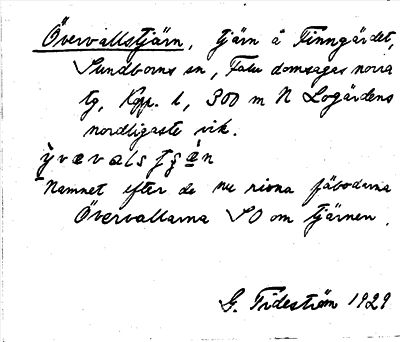 Övervallstjärn, tjärn å Finngärdet,
Sundborns sn, Falu domsagas norra
tg, Kopp. l, 300 m N Logärdens
nordligaste vik.
Namnet efter de nu rivna fäbodarna
Övervallarna SO om tjärnen.
G. Tideström 1929